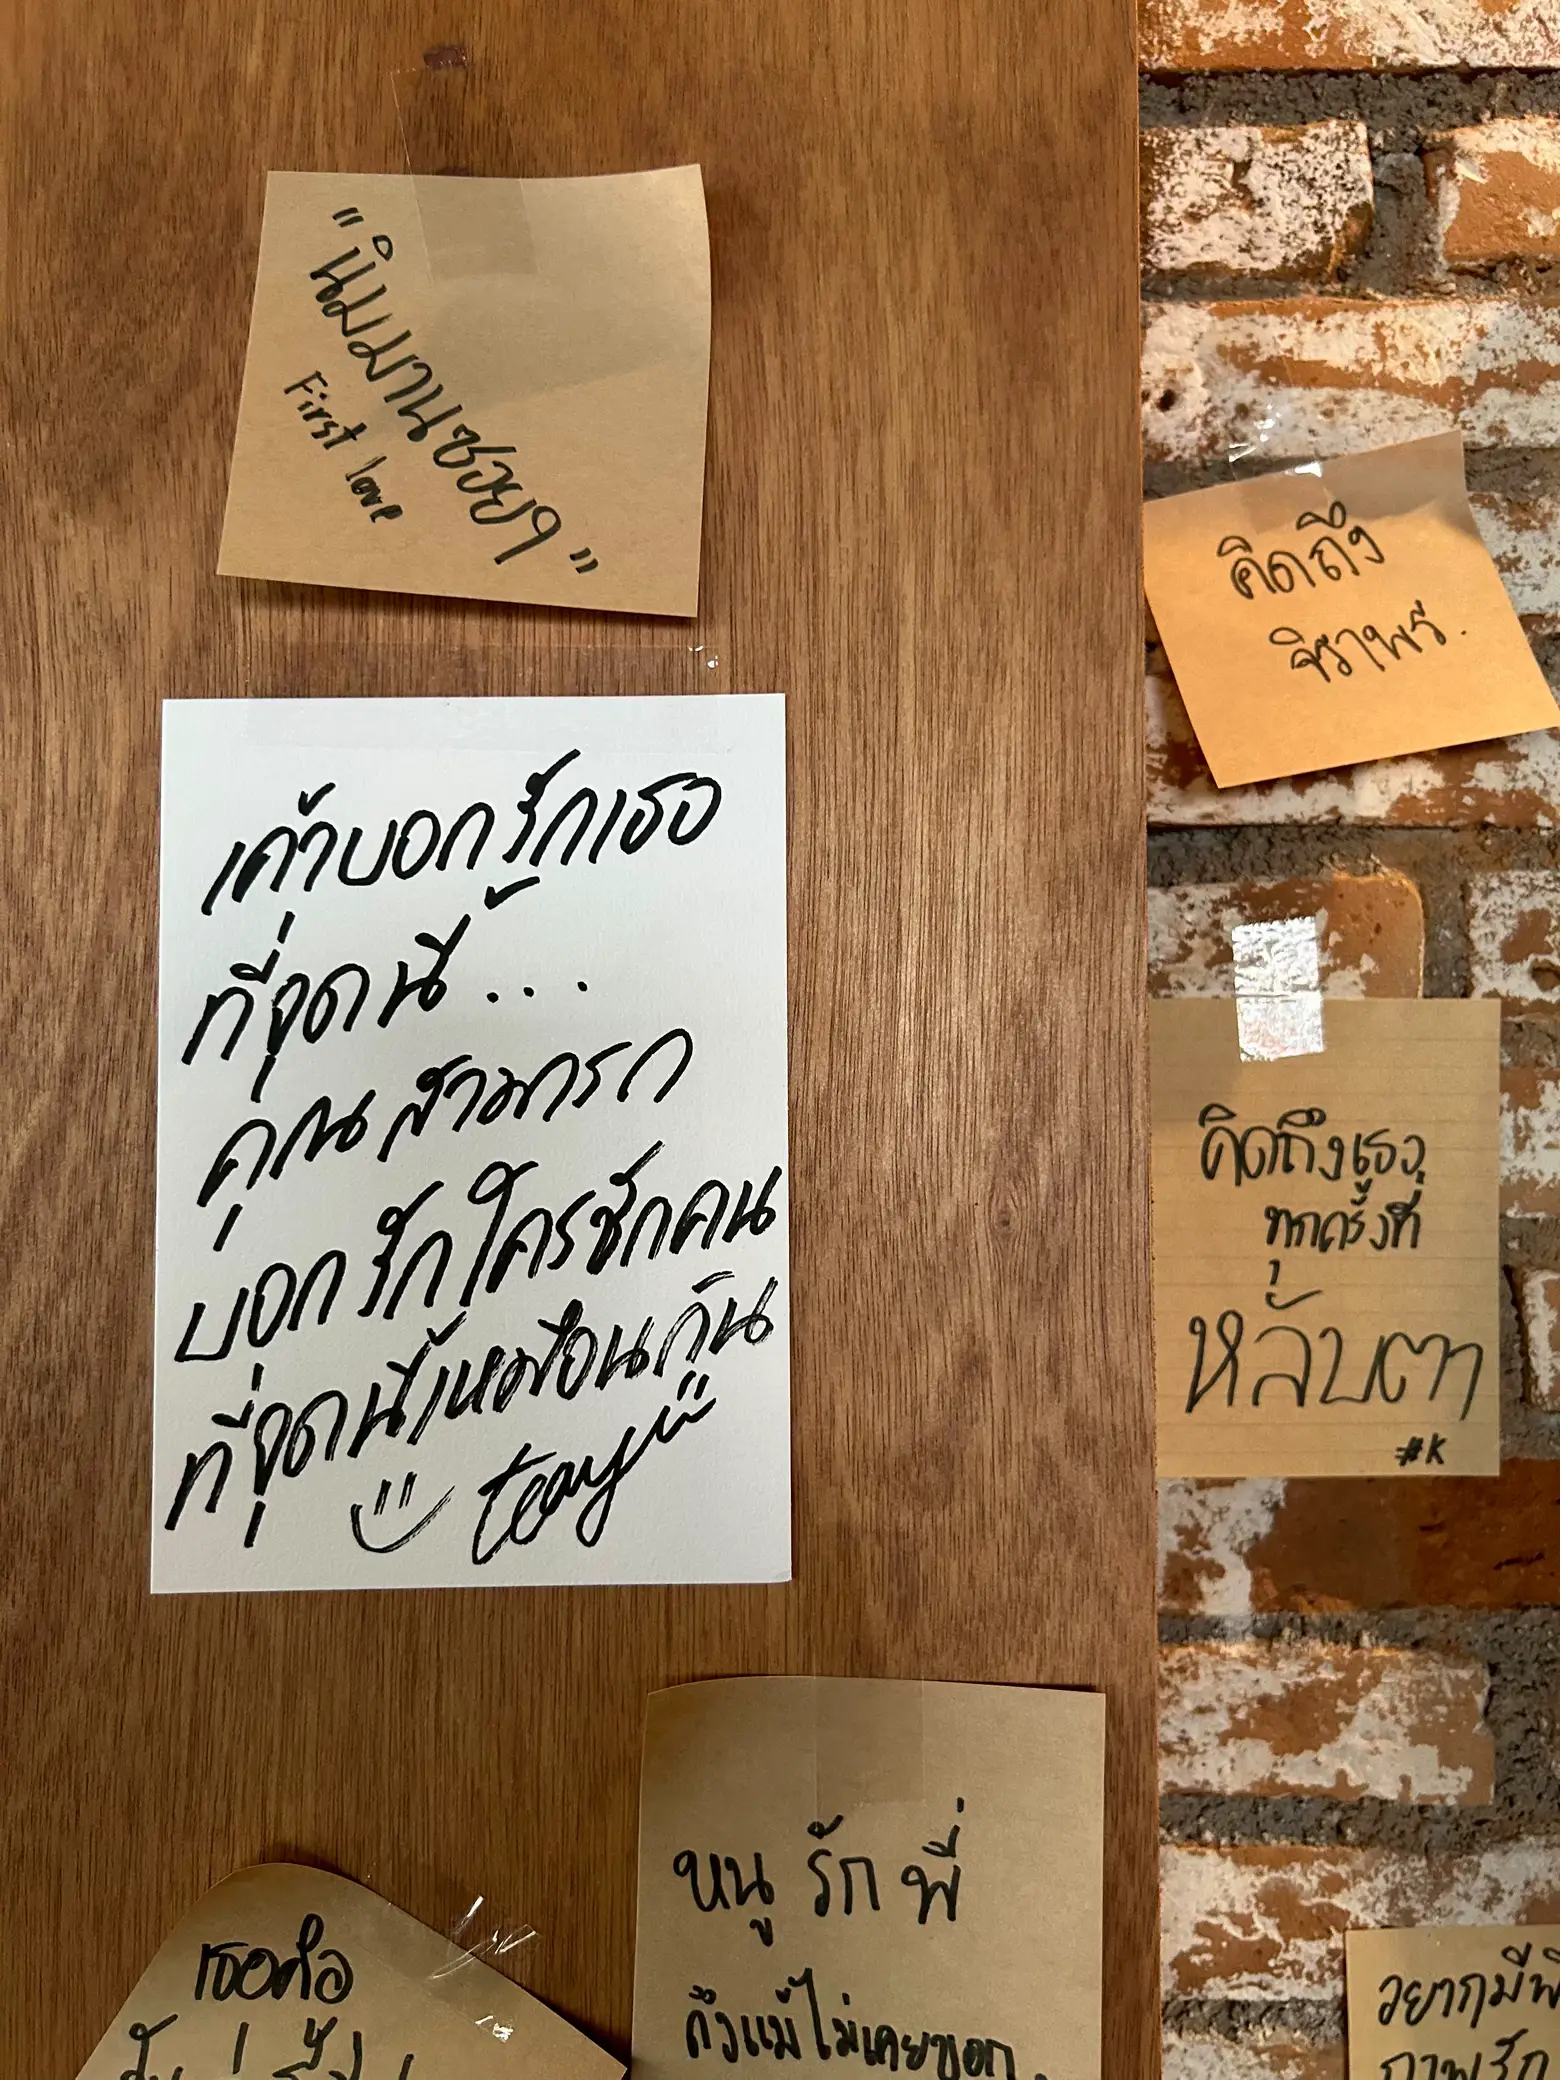 "นิมมานซอย1"
First love
คิดถึง
จิราพร.
เค้าบอกรักเธอ
ที่จุดนี้...
คุณสามารถ
บอกรักใครซักคน
ที่จุดนี้เหมือนกัน
teayii
คิดถึงเธอ
ทุกครั้งที่
หลับตา
#K
หนู รัก พี่
ถึงแม้ไม่เคยบอก.
เธอคือ
อยากมีพี่
ภาพรัก